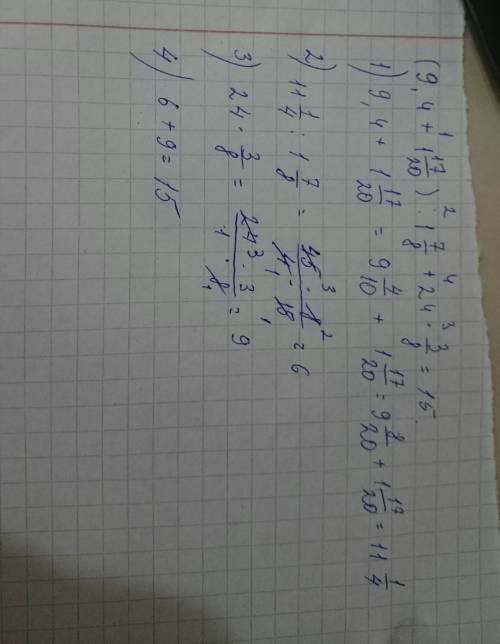 (9,4 + 1 17/20) : 1 7/8 + 24 · 3/8 = 15.
1) 9,4 + 1 17/20 = 9 4/10 + 1 17/20 = 9 8/20 + 1 17/20 = 11 1/4
2) 11 1/4 : 1 7/8 = 45 · 8 / 4 · 15 = 6
3) 24 · 3/8 = 24 · 3 / 1 · 8 = 9
4) 6 + 9 = 15